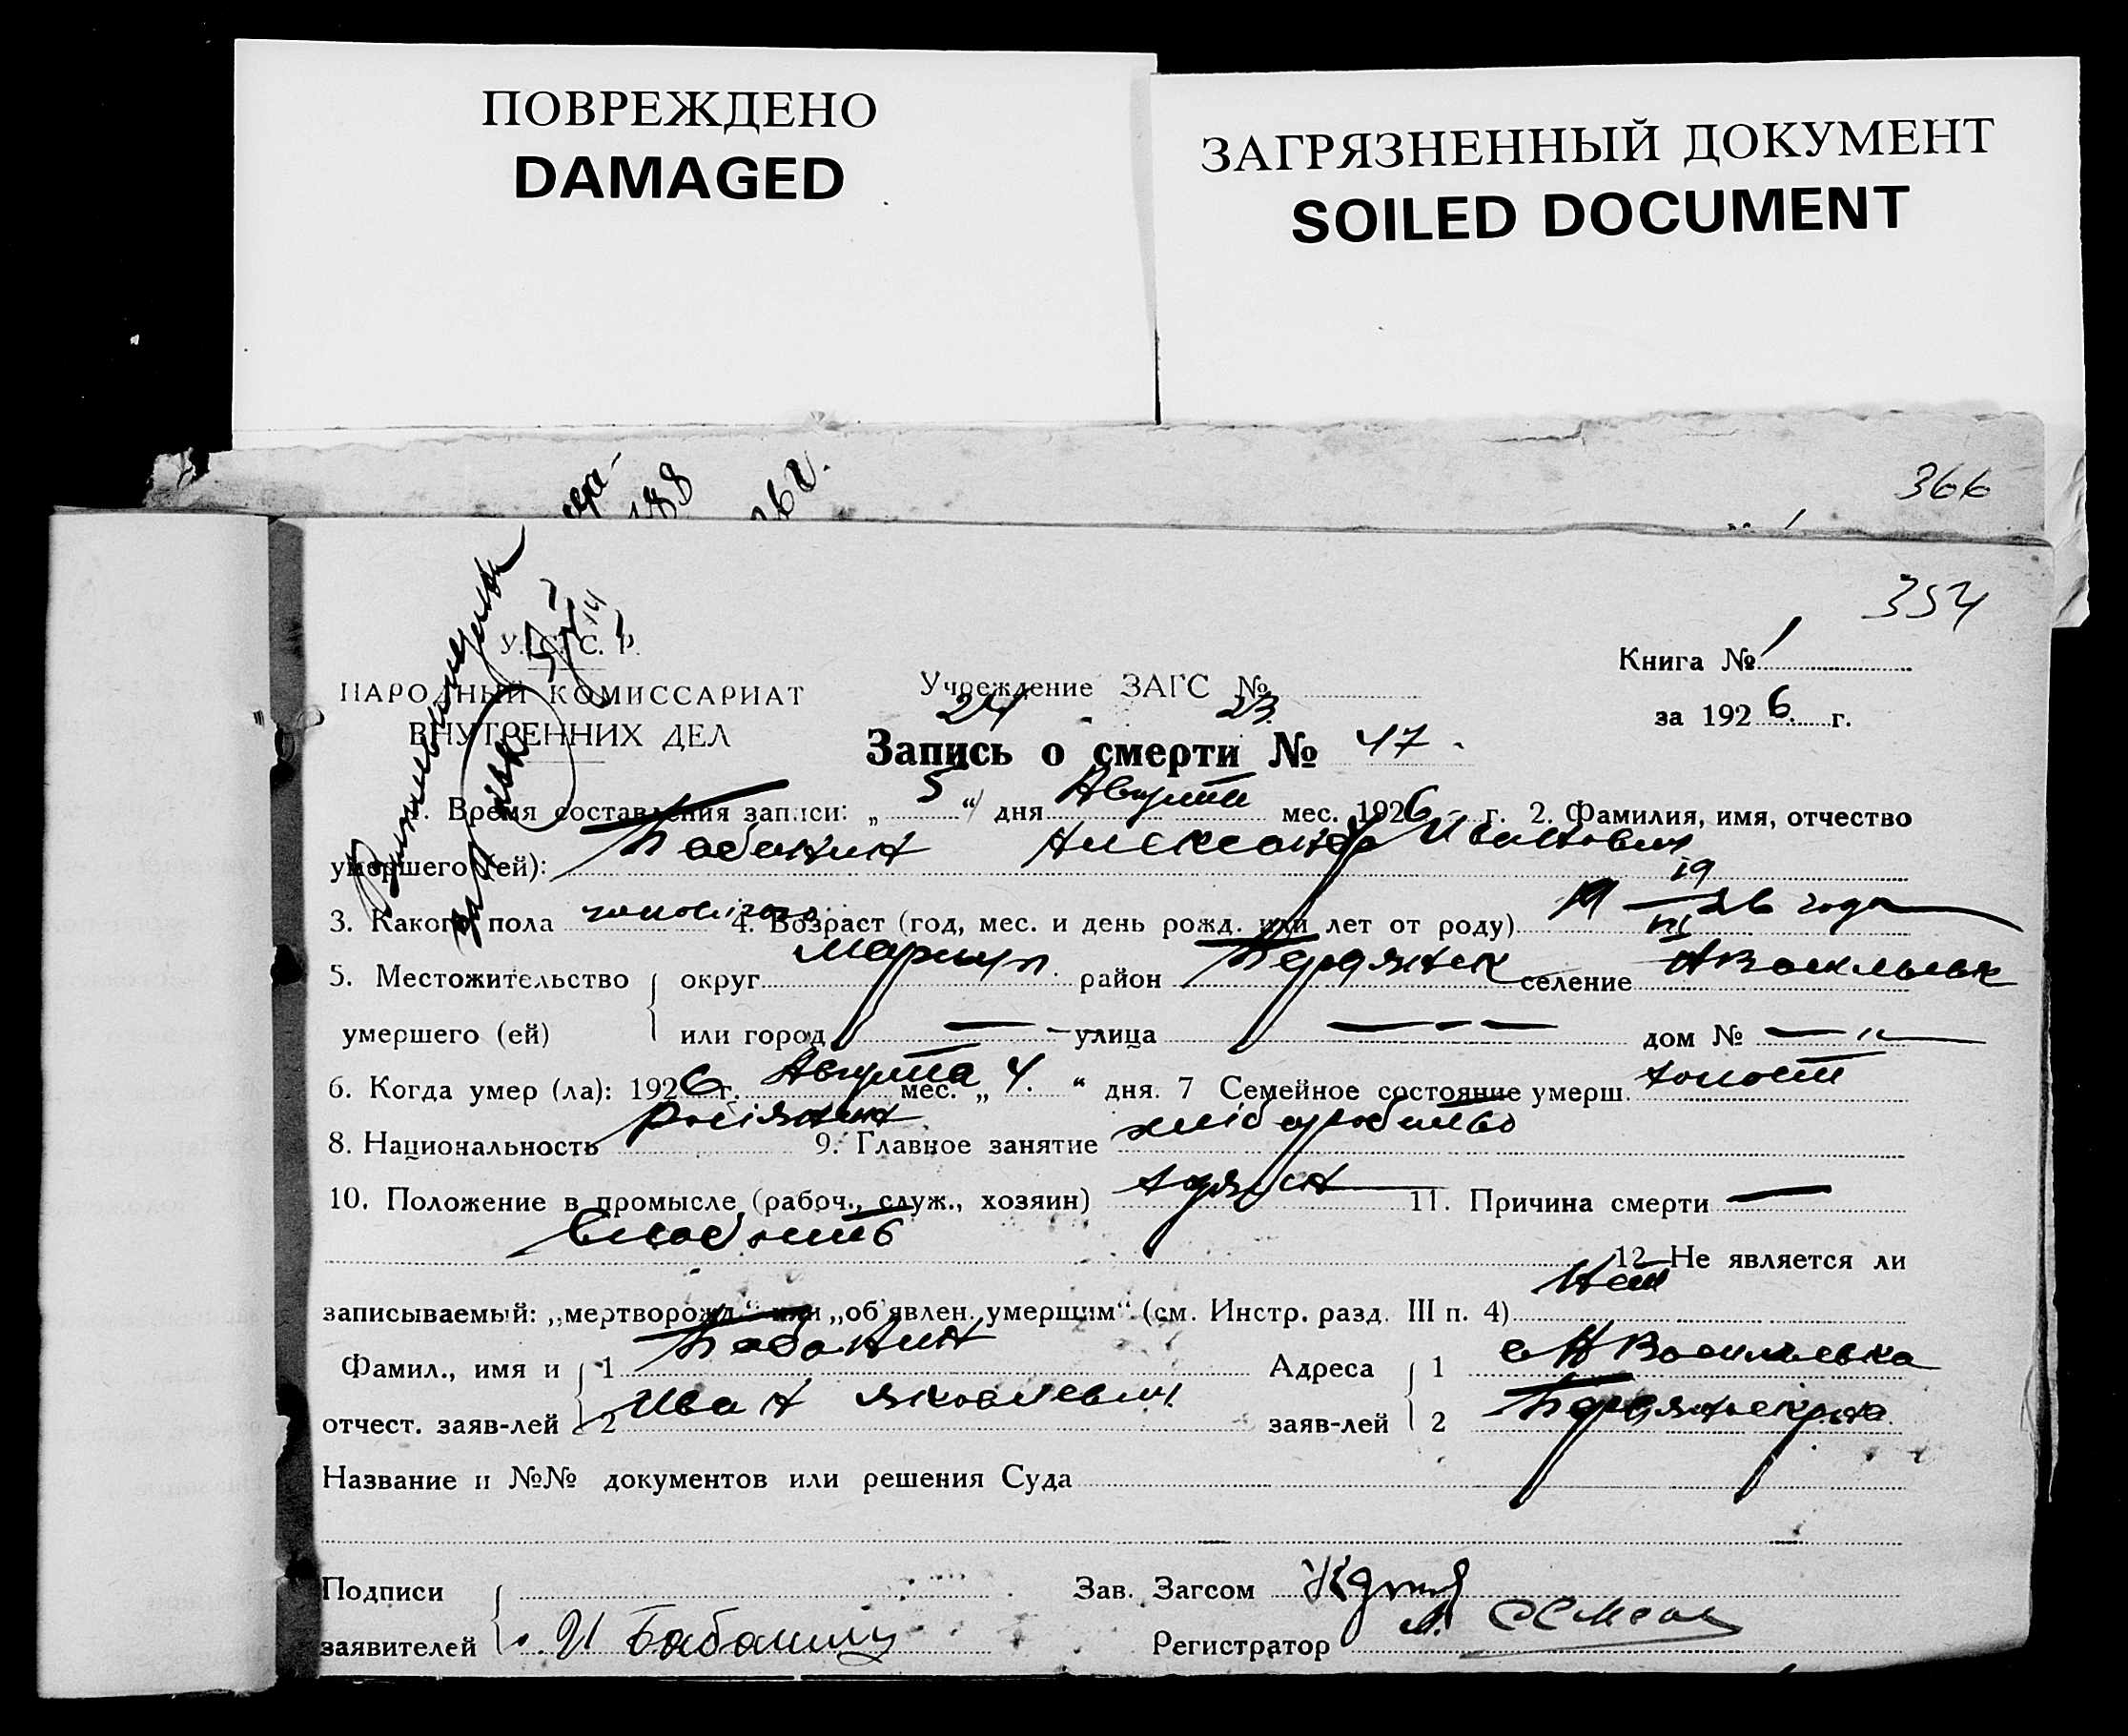 ПОВРЕЖДЕНО
DAMAGED
ЗАГРЯЗНЕННЫЙ ДОКУМЕНТ
SOILED DOCUMENT
366
354
У. С. С. Р.
НАРОДНЫЙ КОМИССАРИАТ
ВНУТРЕННИХ ДЕЛ
Учреждение ЗАГС №
24 23
Книга № 1
за 1926 г.
Запись о смерти № 47
1. Время составления записи: „ 5 “ дня Августа мес. 1926 г. 2. Фамилия, имя, отчество
умершего (ей): Бабанин Александр Иванович
3. Какого пола 4. Возраст (год, мес. и день рожд. или лет от роду) 19 26 года
5. Местожительство округ Мариуп. район Бердянск селение НВасильевк
умершего (ей) или город — улица — — — дом № —
6. Когда умер (ла): 1926 г. Августа мес. „ 4. “ дня. 7 Семейное состояние умерш. холост
8. Национальность росіянин 9. Главное занятие хліборобство
10. Положение в промысле (рабоч., служ., хозяин) 11. Причина смерти —
слабость
12 Не является ли
записываемый: „мертворожд.“ или „об'явлен. умершим“ (см. Инстр. разд. III п. 4) Нет
Фамил., имя и 1 Бабанин Адреса 1 с НВасильевка
отчест. заяв-лей 2 Иван Яковлевич заяв-лей 2 Бердянск р-на
Название и №№ документов или решения Суда
Подписи Зав. Загсом
заявителей И Бабанин Регистратор